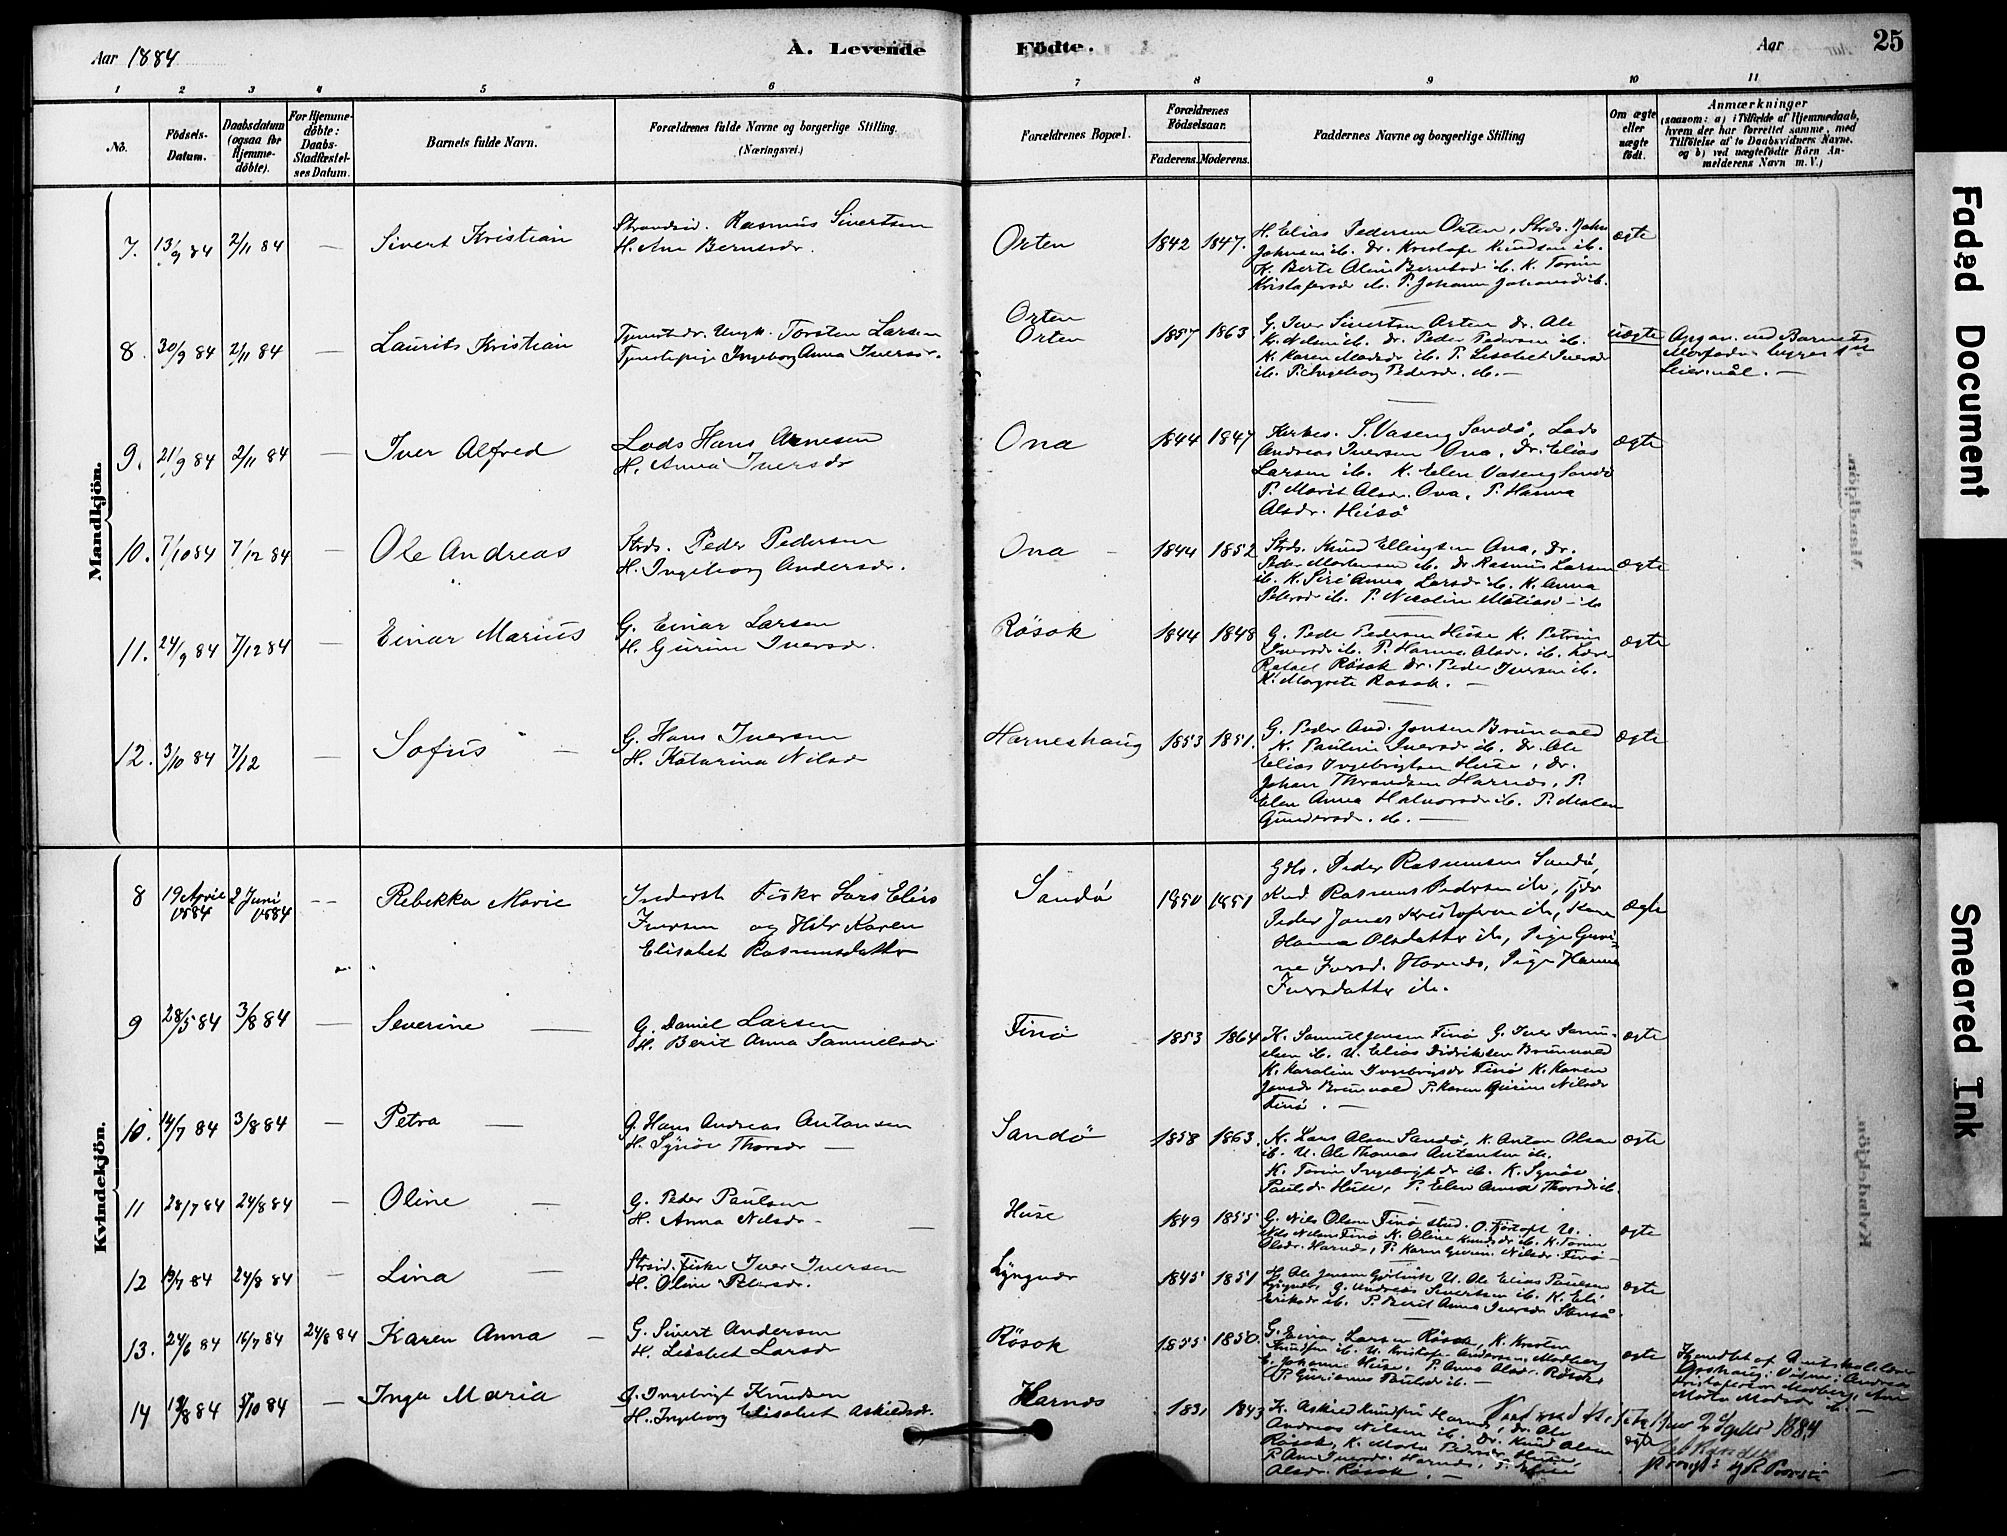 Aar 1884
A. Levende
Födte.
Aar
25
1 2 3 4 5 6 7 8 9 10 11
No.
Födsels-Datum.
Daabsdatum (ogsaa for Hjemme-döbte).
For Hjemme-döbte: Daabs-Stadfæstel-ses Datum.
Barnets fulde Navn.
Forældrenes fulde Navne og borgerlige Stilling. (Næringsvei.)
Forældrenes Bopæl.
Forældrenes Födselsaar.
Faderens. Moderens.
Faddernes Navne og borgerlige Stilling
Om ægte eller uægte födt.
Anmærkninger
(saasom: a) i Tilfælde af Hjemmedaab, hvem der har forrettet samme, med Tilföielse af to Daabsvidners Navne. og b) ved uægtefödte Börn An-melderens Navn m. V.)
Mandkjön.
7. 13/9 84 2/11 84 — Sivert Kristian
Strandsid. Rasmus Sivertsen
H. Ane Berntsdr.
Orten 1842 1847.
H. Elias Pedersen Orten, Strds. John
Johnsen ib. Dr. Kristofe Knudsen ib.
K. Berte Oline Berntsd ib. K. Torine
Kristofersdr ib. P. Johanna Johansd ib.
ægte
8. 30/9 84 2/11 84 — Laurits Kristian
Tjenestdr. Ungk. Torsten Larsen
Tjenestepige Ingeborg Anna Iversdr.
Orten
Orten 1857 1863
G. Iver Sivertsen Orten Dr. Ole
K. Nilsen ib. Dr. Peder Pedersen ib.
K. Karen Madsdr ib. P. Lisabet Iversdr
ib. P. Ingeborg Pedersdr. ib. —
uægte
Angav. ved Barnets
Morfader begges 1ste
Leiermål. —
9. 21/9 84 2/11 84 — Iver Alfred
Lods Hans Arnesen
H. Anna Iversdr
Ona 1844 1847
Kirkes. S. Vaseng Sandø, Lods
Andreas Iversen Ona, Dr. Elias
Larsen ib. K. Elen Vaseng Sandø
P. Marit Olsdr. Ona, P. Hanna
Olsdr. Husø
ægte
10. 7/10 84 7/12 84 — Ole Andreas
Strds. Peder Pedersen
H. Ingeborg Andersdr.
Ona 1844 1852
Strds. Knud Ellingsen Ona, Dr.
Peder Mortensen ib. Dr Rasmus Larsen
ib. K. Siri Anna Larsdr ib. K. Anna
Petersdr ib. P. Nicoline Matiasd — ib
ægte
11. 24/9 84 7/12 84 — Einar Marius
G. Einar Larsen
H. Gurine Iversdr.
Røsok 1844 1848
G. Peder Pedersen Huse K. Petrine
Iversdr ib. P. Hanna Olsdr. ib. Lærer
Rafael Røsok Dr. Peder Iversen ib.
K. Margrete Rosok. —
ægte
12. 3/10 84 7/12 — Sofus
G. Hans Iversen
H. Katarina Nilsdr
Harneshaug 1853 1851.
G. Peder And. Jonsen Brunvold
K. Pauline Iversdr ib. Dr. Ole
Elias Ingebrigtsen Huse, Dr.
Johan Throndsen Harnes, P.
Elen Anna Halvorsdr ib. P. Malen
Gundersdr. ib. —
ægte
Kvindekjön.
8 19 April 1884 2 Juni 1884 -- Rebekka Marie
Inderst Fisker Lars Elias
Iversen og Hstr Karen
Elisabet Rasmusdatter
Sandø 1850 1851
Gbr. Peder Rasmusen Sandø,
Knd. Rasmus Pedersen ib, Gbr
Peder Jonas Kristofersen ib, Kone
Hanna Olsdatter ib, Pige Guri-
ne Iversd. Harnes, Pige Hanna
Iversdatter ib.
ægte
9 28/5 84 3/8 84 — Severine
G. Daniel Larsen
H. Berit Anna Samuelsdr
Finø 1853 1864
K. Samuel Jensen Finø G. Iver Samu-
elsen ib. U. Elias Didriksen Brunvold
K. Karoline Ingebrigsdr Finø K. Karen
Jonsdr Brunvold P. Karen Gurine Nilsdr
Finø. —
ægte
10. 14/7 84 3/8 84 — Petra
G. Hans Andreas Antonsen
H. Synöe Thorsdr —
Sandø 1858 1863.
K. Lars Olsen Sandø, K. Anton Olsen
ib. U. Ole Thomas Antonsen ib.
K. Torine Ingebrigtdr ib. K. Synöe
Paulsdr Huse, P. Elen Anna Thorsdr ib.
ægte
11 28/7 84 24/8 84 — Oline
G. Peder Paulsen
H. Anna Nilsdr —
Huse 1849 1855
G. Nils Olsen Finø stud. O. Fjørtoft U.
Nils Nilsen Finø K. Oline Knudsdr ib. K. Torine
Olsdr. Harnes, P. Karen Gurine Nilsdr. Finø —
ægte
12 19/7 84 24/8 84 — Lina
Strsid. Fisker Iver Iversen
H. Oline Petersdr.
Lyngvær 1845 1851
U. Ole Elias Paulsen
G. Andreas Sivertsen ib. K. Eli
Eriksdr ib. P. Berit Anna Iversdr
ægte
13. 24/6 84 16/7 84 24/8 84 Karen Anna —
G. Sivert Andersen
H. Lisabet Larsdr
Røsok 1855 1850.
G. Einar Larsen Røsok, K. Kirsten
Knudsen ib. U. Kristofer Andersen Madberg
E. Johanne Huse, P. Anna Olsdr. Røsok,
P. Gurianna Paulsdr ib. —
ægte
Hjemdøbt af
14 19/8 84 5/10 84 — Inga Maria
G. Ingebrigt Knudsen
H. Ingeborg Elisabet Askildsdr.
Harnes 1831 1843
K. Askild Knudsen Harnes, Dr. Ole
Andreas Nilsen ib. Dr. Knud Olsen
Røsok, K. Marta Pedersdr Huse,
P. Ane Iversdr. Harnes,
Olsdr. Røsok. —
ægte
2 Septbr 1884
Faded Document
Smeared Ink